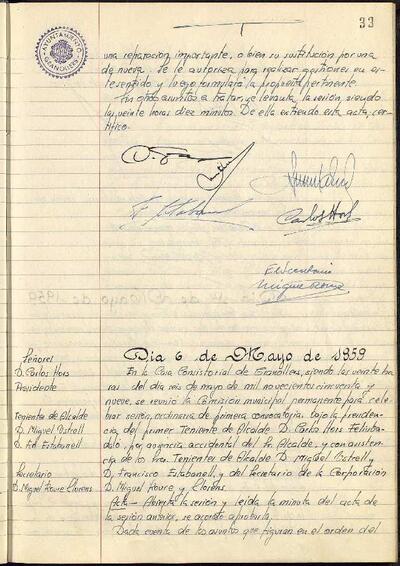 33
AYUNTAMIENTO
GRANOLLERS
una reparación importante, o bien su sustitución por una
de nueva. Se le autoriza para realizar gestiones en es-
te sentido y luego formulará la propuesta pertinente.
Sin otros asuntos a tratar, se levanta la sesión siendo
las veinte horas diez minutos. De ella extiendo esta acta, cer-
tifico.
Carlos Hors
El Secretario
Día 6 de Mayo de 1959
Señores
D. Carlos Hors
Presidente
Tenientes de Alcalde
D. Miguel Estrell
D. Fco Estabanell
Secretario
D. Miguel Roure Llorens
En la Casa Consistorial de Granollers, siendo las veinte ho-
ras del día seis de mayo de mil novecientos cincuenta y
nueve, se reunió la Comisión municipal permanente para cele-
brar sesión, ordinaria de primera convocatoria bajo la presiden-
cia del primer Teniente de Alcalde D. Carlos Hors
por ausencia accidental del Sr. Alcalde, y con asisten-
cia de los Sres. Tenientes de Alcalde D. Miguel Estrell y
D. Francisco Estabanell, y del Secretario de la Corporación
D. Miguel Roure y Llorens.
Acta.- Abierta la sesión y leída la minuta del acta de
la sesión anterior, se acordó aprobarla.
Dada cuenta de los asuntos que figuran en el orden del